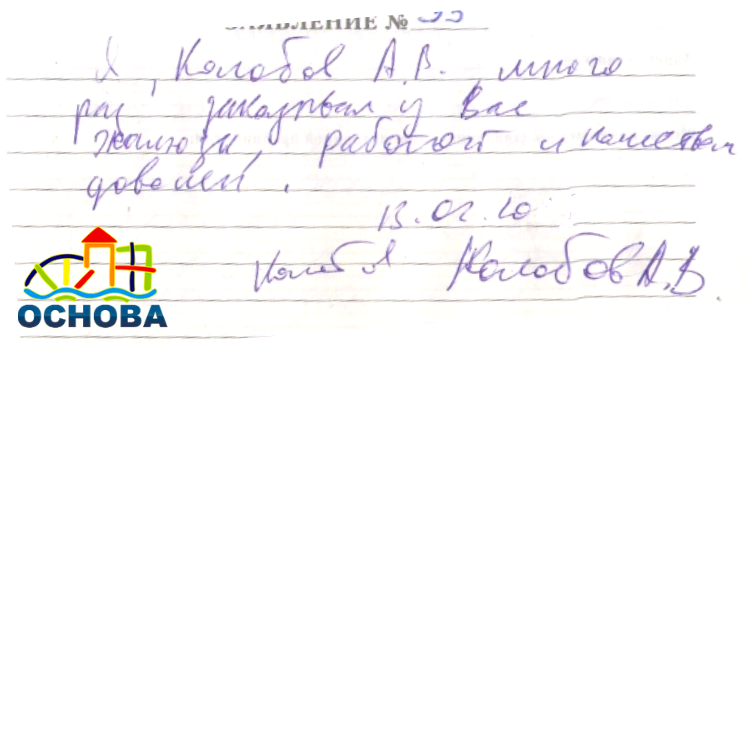 ЗАЯВЛЕНИЕ №
Я, Колобов А.В., много
раз заказывал у вас
жалюзи, работой и качеством
доволен.
13.02.20
Колобов Колобов А.В.
ОСНОВА